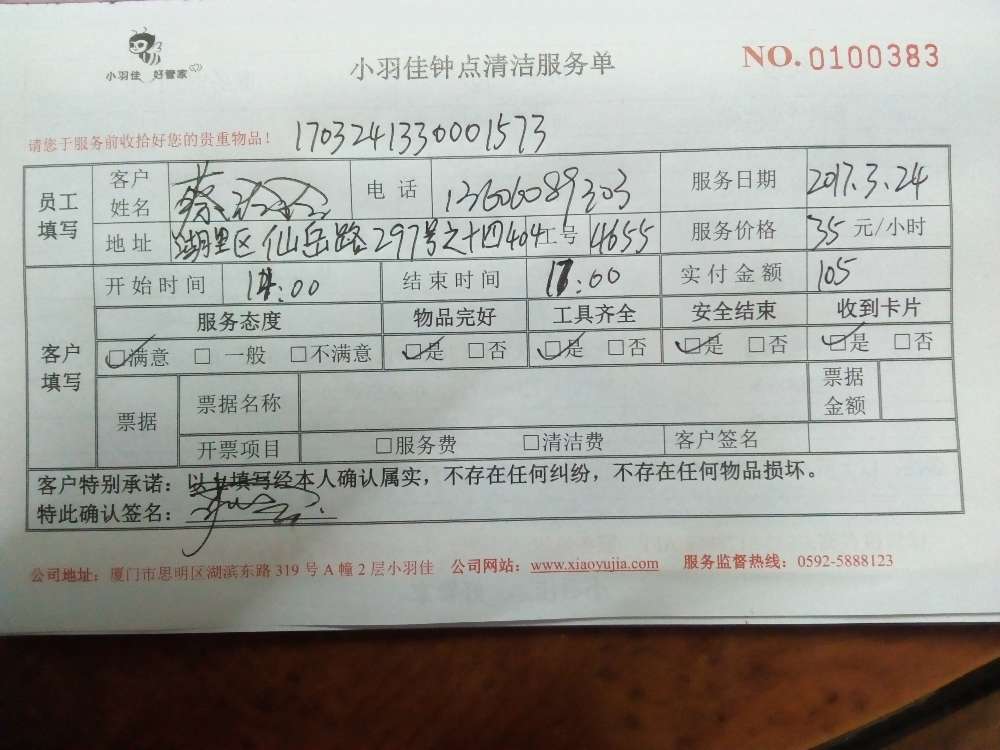 小羽佳 好管家
小羽佳钟点清洁服务单
NO.0100383
请您于服务前收拾好您的贵重物品！ 1703241330001573
员工填写 客户姓名 蔡 电话 13606089303 服务日期 2017.3.24
地址 湖里区仙岳路297号之十四404 工号 4655 服务价格 35 元/小时
客户填写 开始时间 14:00 结束时间 17:00 实付金额 105
服务态度 物品完好 工具齐全 安全结束 收到卡片
☑满意 □一般 □不满意 ☑是 □否 ☑是 □否 ☑是 □否 ☑是 □否
票据 票据名称 票据金额
开票项目 □服务费 □清洁费 客户签名
客户特别承诺：以上填写经本人确认属实，不存在任何纠纷，不存在任何物品损坏。
特此确认签名：
公司地址：厦门市思明区湖滨东路 319 号 A 幢 2 层小羽佳 公司网站：www.xiaoyujia.com 服务监督热线：0592-5888123